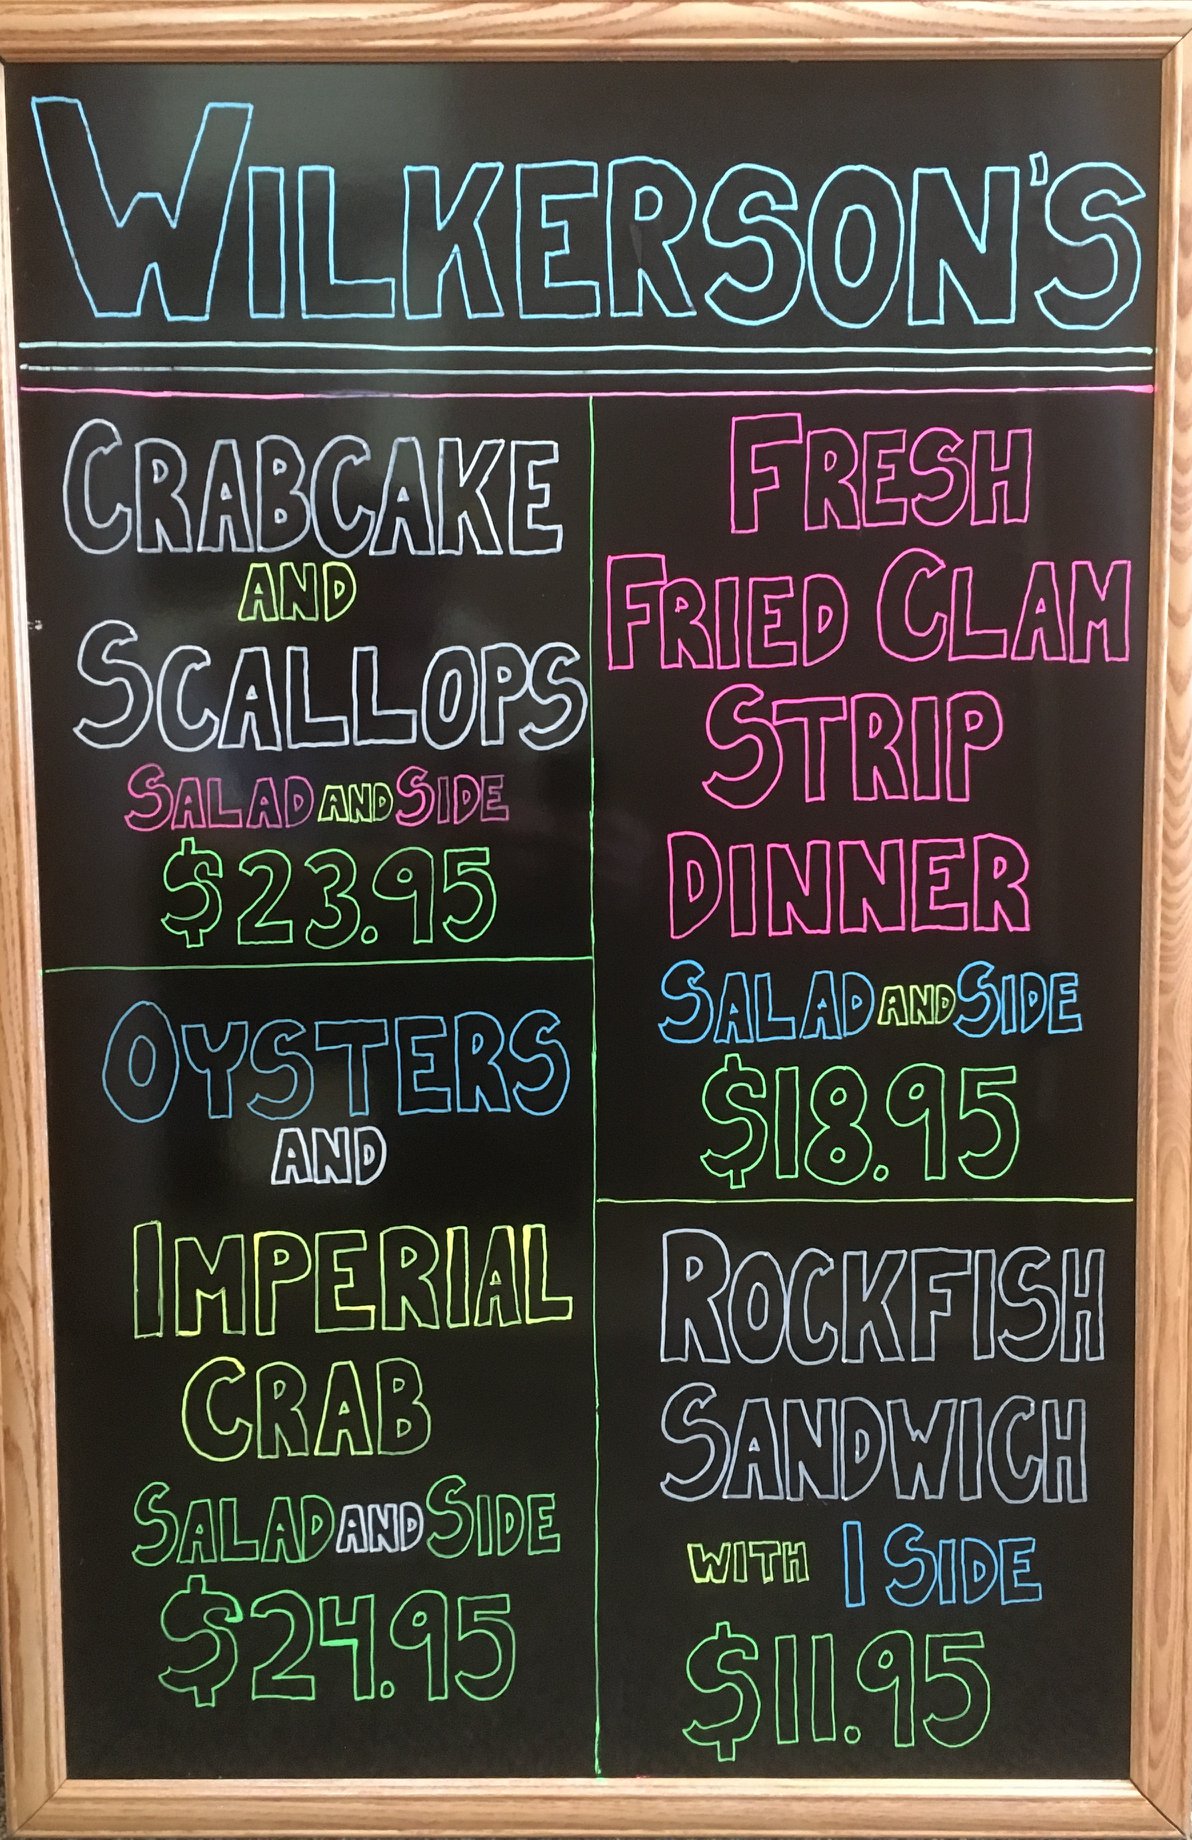 WILKERSON'S
CRABCAKE
AND
SCALLOPS
SALAD AND SIDE
$23.95
OYSTERS
AND
IMPERIAL
CRAB
SALAD AND SIDE
$24.95
FRESH
FRIED CLAM
STRIP
DINNER
SALAD AND SIDE
$18.95
ROCKFISH
SANDWICH
WITH 1 SIDE
$11.95